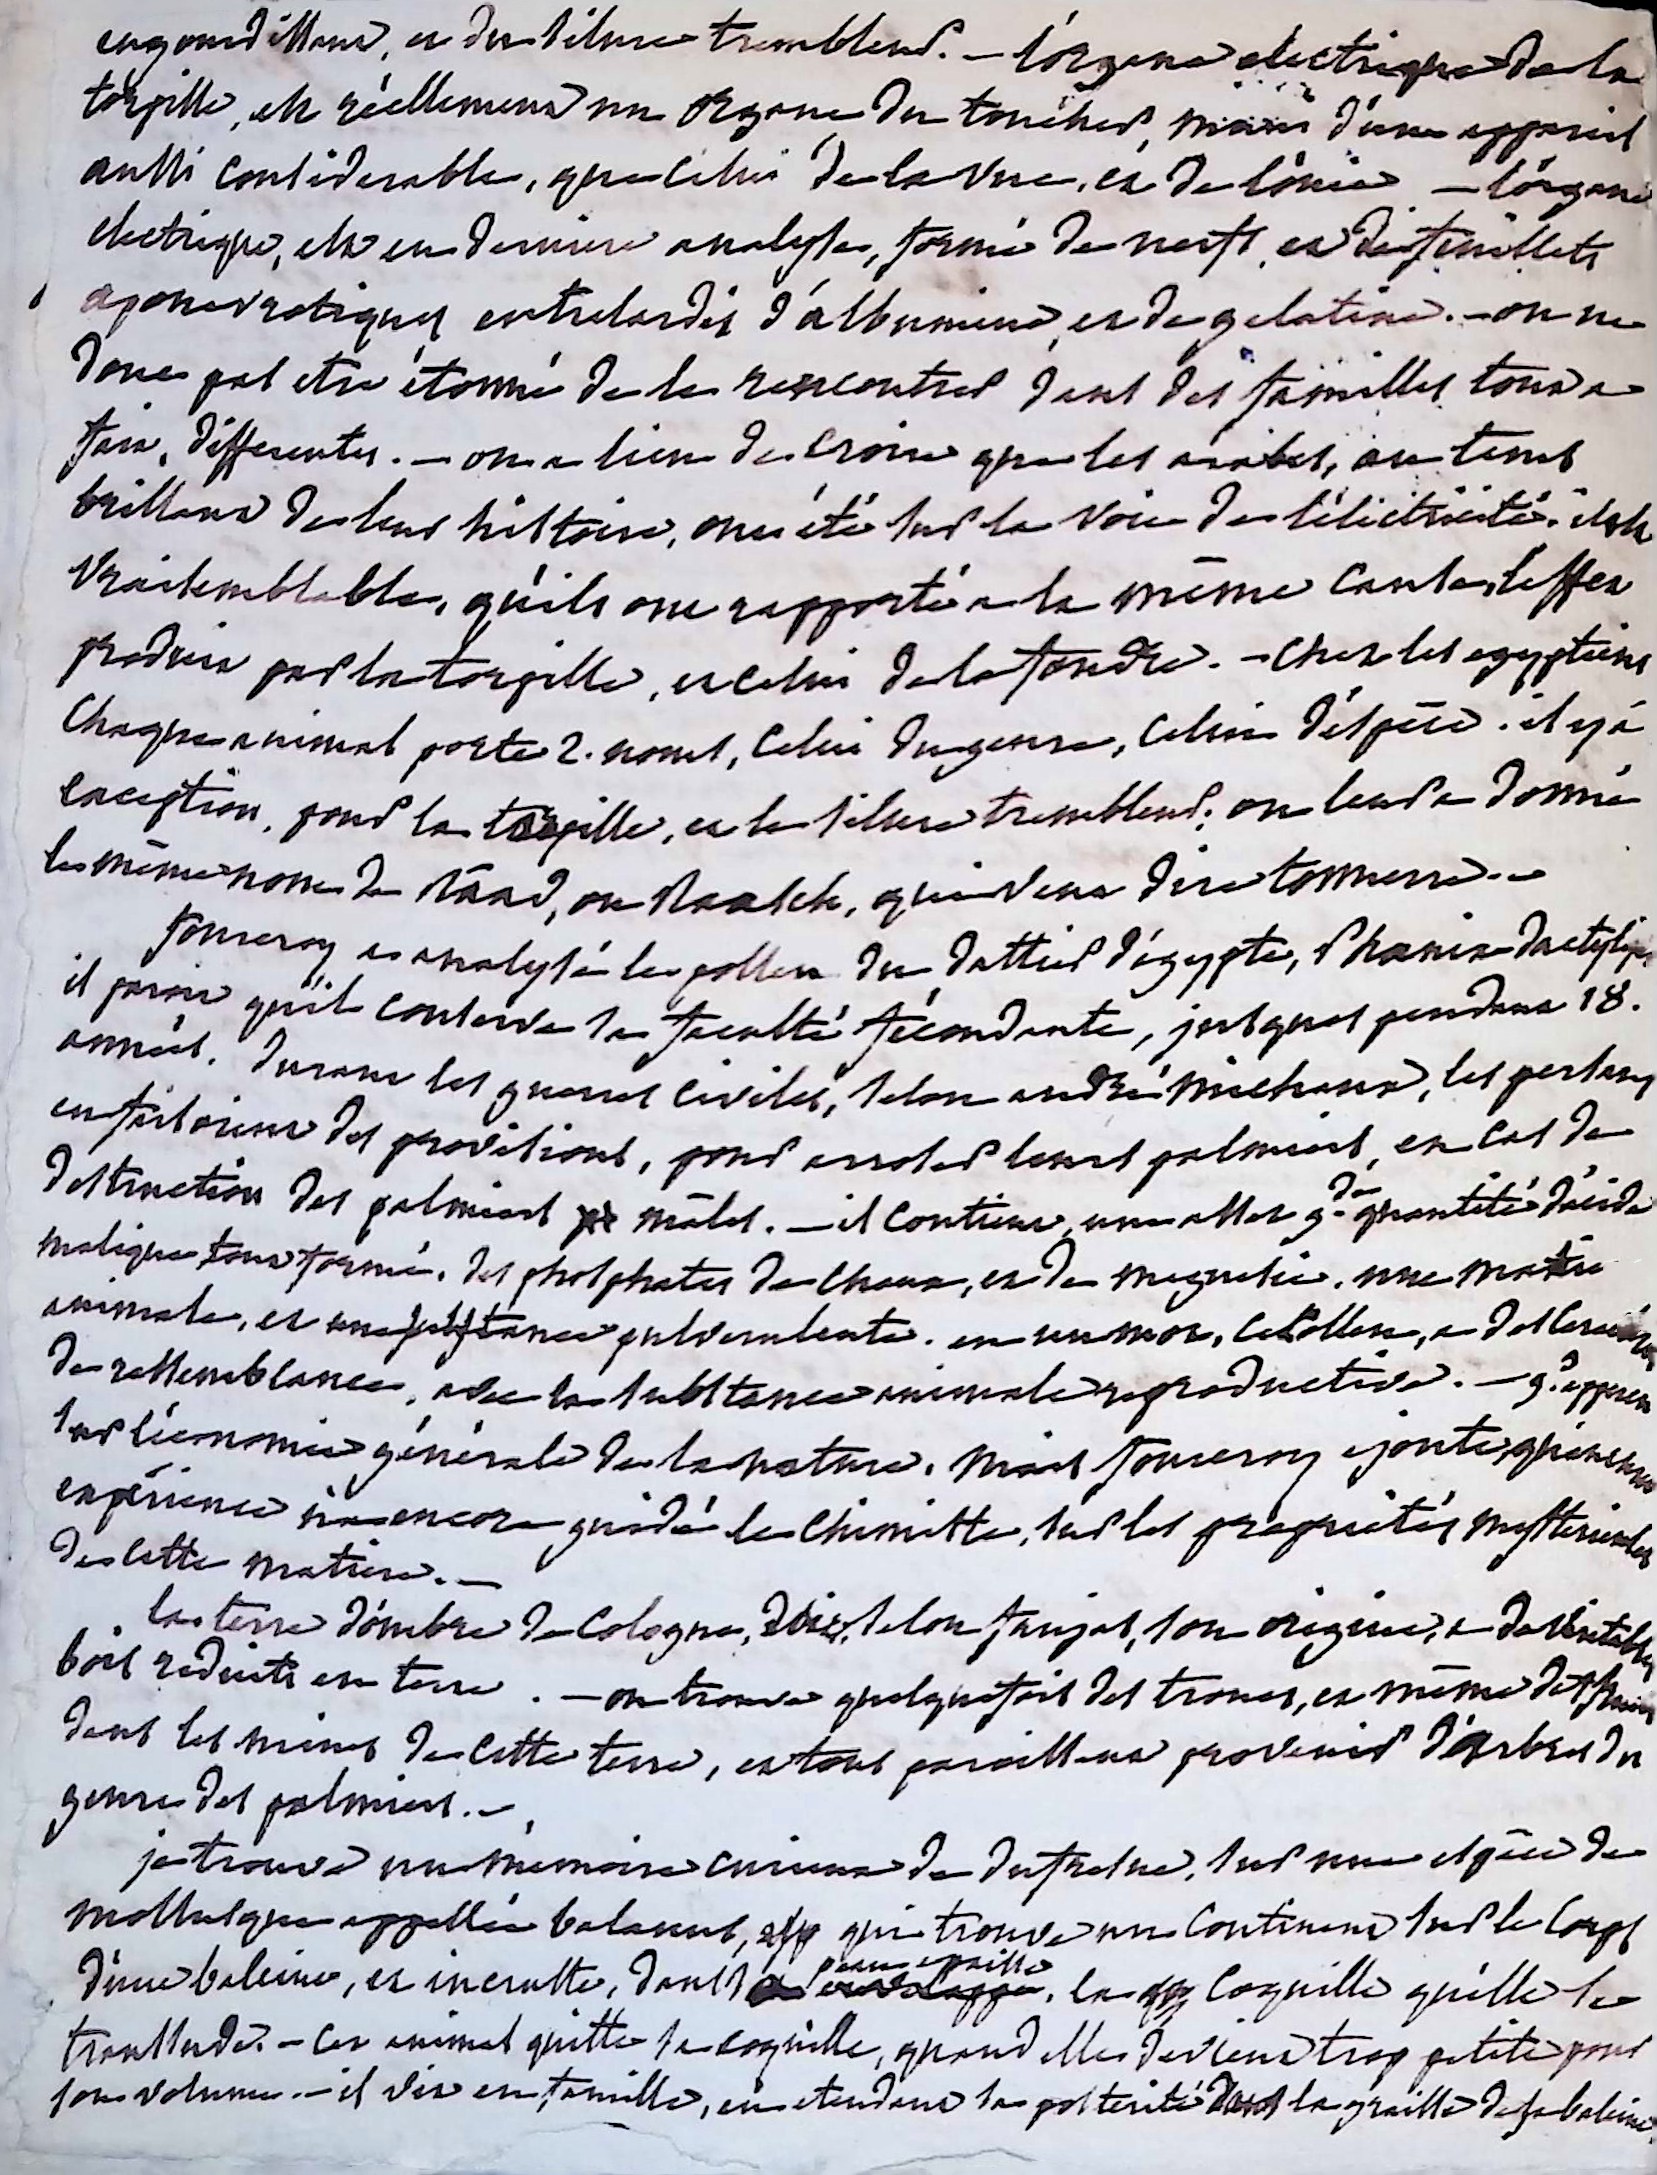 engourdissant, et du silure trembleur. - l'organe electrique de la
torpille, est réellement un organe du toucher, mais d'un appareil
aussi considerable, que celui de la vue, et de l'ouie - l'organe
electrique, est en derniere analyse, formé de nerfs, et de feuillets
aponevrotiques entrelardés d'albumine, et de gelatine. - on ne
donc pas etre étonné de le rencontrer dans des familles tout a
fait, differentes. - on a lieu de croire que les arabes, au tems
brillant de leur histoire, ont été sur la voie de l'électricité. il est
vraisemblable, qu'ils ont rapporté a la même cause, l'effet
produit par la torpille, et celui de la foudre. - chez les egyptiens
chaque animal porte 2. noms, celui du genre, celui d'espèce. il y a
exception, pour la torpille, et le silure trembleur; on leur a donné
le même nom de Râad, ou Raasch, qui veut dire tonnerre. -
fourcroy a analysé le pollen du dattier d'égypte, Phœnix dactylif
il parait qu'il conserve sa faculté fécondante, jusques pendant 18.
années. durant les guerres civiles, selon andré michaux, les persans
en faisoient des provisions, pour arroser leurs palmiers, en cas de
destruction des palmiers mâles. - il contient, une assez g.de quantité d'acide
malique tout formé, des phosphates de chaux, et de magnesie. une matière
animale, et une substance pulverulente. en un mot, ce Pollen, a des
de ressemblance, avec la substance animale reproductive. -
sur l'économie générale de la nature. mais fourcroy ajoute, qu'aucune
expérience n'a encore guidé le chimiste, sur les propriétés mysterieuses
de cette matiere. -
la terre d'ombre de Cologne, doit, selon faujas, son origine, a de véritables
bois reduits en terre. - on trouve quelquefois des troncs, et même des fruits
dans les mines de cette terre, et tous paraissent provenir d'arbres du
genre des palmiers. -
je trouve un memoire curieux de dufresne, sur une espèce de
mollusque appellée balanus, qui trouve un continent sur le corps
d'une baleine, et incruste, dans sa peau epaisse, la coquille qu'elle se
transsude. - cet animal quitte sa coquille, quand elle devient trop petite pour
son volume. - il vit en famille, en etendant sa posterité la graisse de sa baleine.